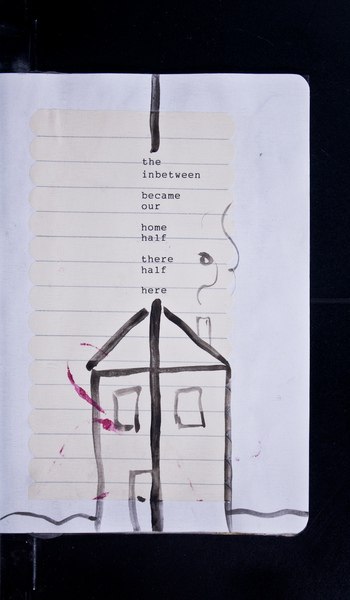 the
inbetween
became
our
home
half
there
half
here